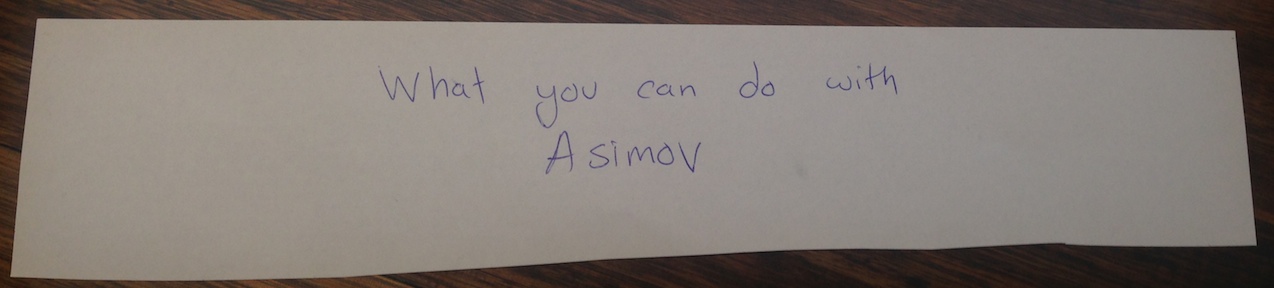 What you can do with
Asimov